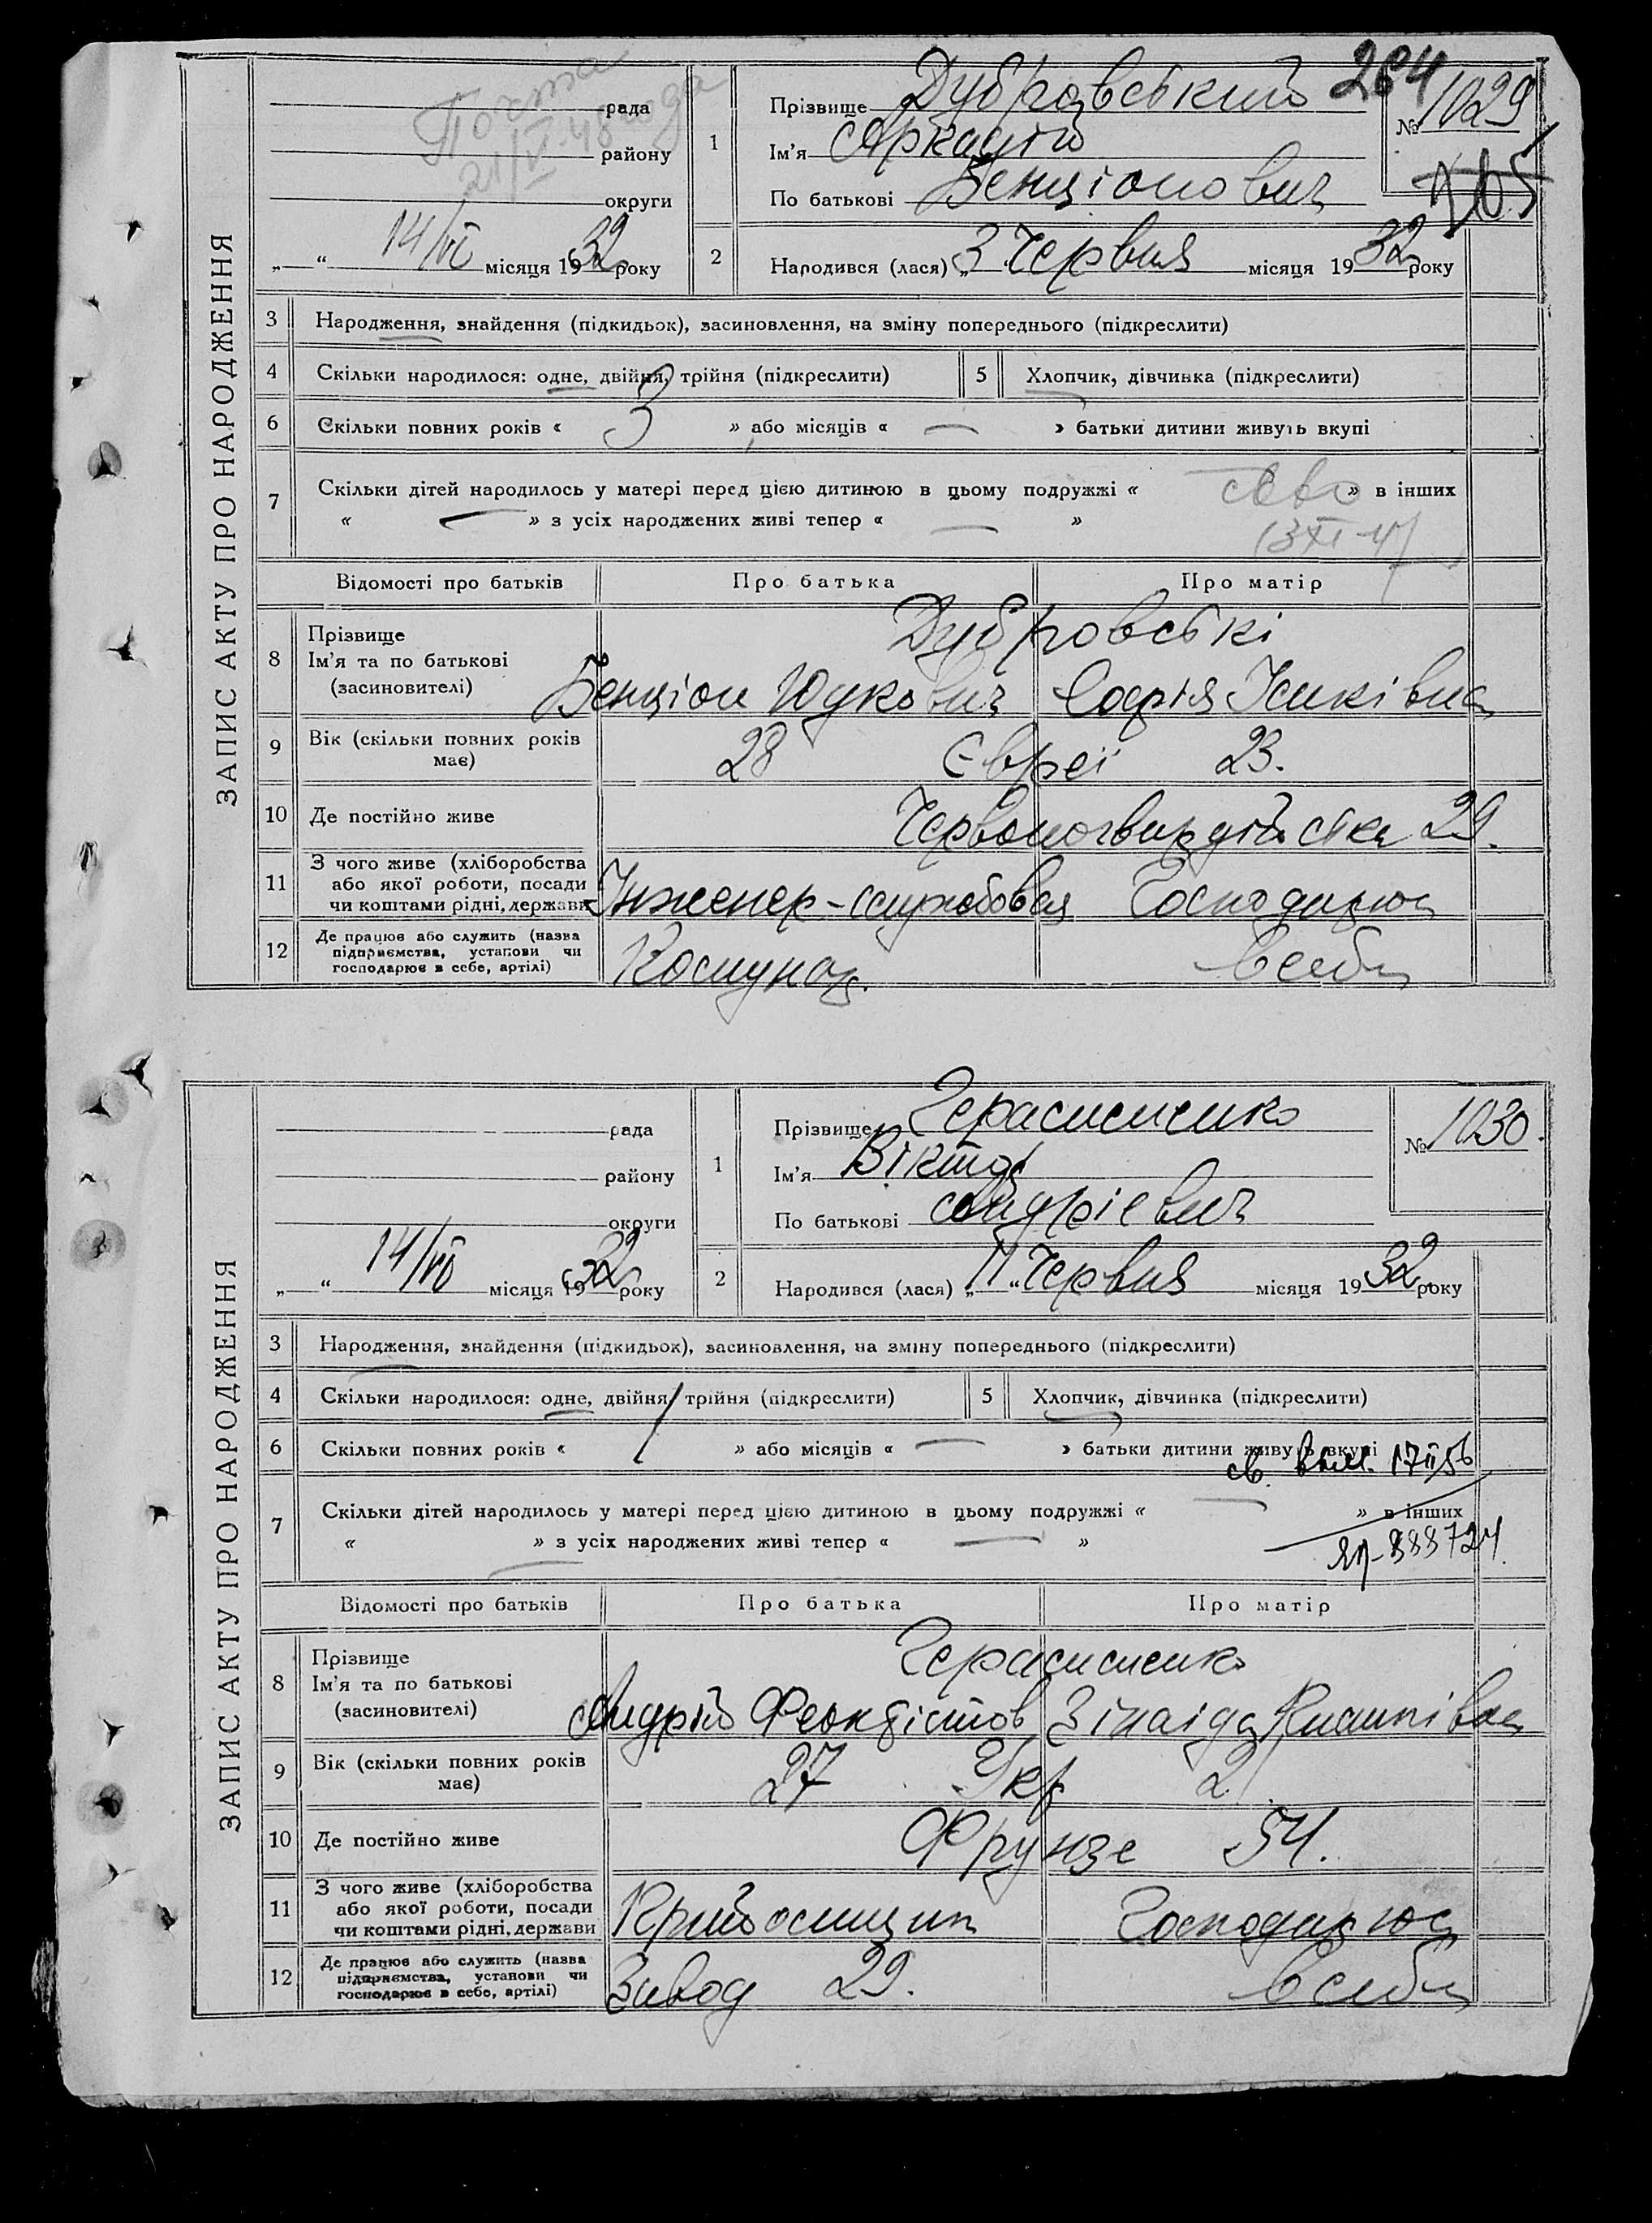 ЗАПИС АКТУ ПРО НАРОДЖЕННЯ
264
Почта
21/V-48 года
рада
району
округи
„ “ 14/VI місяця 1932 року
1 Прізвище Дубровський
Ім'я Аркадій
По батькові Бенціонович
№ 1029
2 Народився (лася) „3 Червня місяця 1932 року
3 Народження, знайдення (підкидьок), засиновлення, на зміну попереднього (підкреслити)
4 Скільки народилося: одне, двійня, трійня (підкреслити) 5 Хлопчик, дівчинка (підкреслити)
6 Скільки повних років « 3 » або місяців « — » батьки дитини живуть вкупі
7 Скільки дітей народилось у матері перед цією дитиною в цьому подружжі « » в інших
« — » з усіх народжених живі тепер « — »
Відомості про батьків Про батька Про матір
8 Прізвище
Ім'я та по батькові
(засиновителі)
Дубровські
Бенціон Юукович Софія Ісиківна
9 Вік (скільки повних років має) 28 Євреї 23.
10 Де постійно живе Червоногвардійська 29.
11 З чого живе (хліборобства
або якої роботи, посади
чи коштами рідні, держави
Інженер-службовец Господарює
12 Де працює або служить (назва
підприємства, установи чи
господарює в себе, артілі)
в себе
ЗАПИС АКТУ ПРО НАРОДЖЕННЯ
рада
району
округи
„ “ 14/VI місяця 1932 року
1 Прізвище Герасименко
Ім'я Віктор
По батькові Андрієвич
№ 1030.
2 Народився (лася) „11“ Червня місяця 1932 року
3 Народження, знайдення (підкидьок), засиновлення, на зміну попереднього (підкреслити)
4 Скільки народилося: одне, двійня, трійня (підкреслити) 5 Хлопчик, дівчинка (підкреслити)
6 Скільки повних років « 1 » або місяців « — » батьки дитини живуть вкупі
св. выд. 17 II 56
7 Скільки дітей народилось у матері перед цією дитиною в цьому подружжі « — » в інших
« — » з усіх народжених живі тепер « — »
888724.
Відомості про батьків Про батька Про матір
8 Прізвище
Ім'я та по батькові
(засиновителі)
Герасименко
Андрій Феоктістов Зінаіда
9 Вік (скільки повних років має) 27 Укр 21
10 Де постійно живе Фрунзе 54.
11 З чого живе (хліборобства
або якої роботи, посади
чи коштами рідні, держави
Господарює
12 Де працює або служить (назва
підприємства, установи чи
господарює в себе, артілі)
Завод 29. в себе